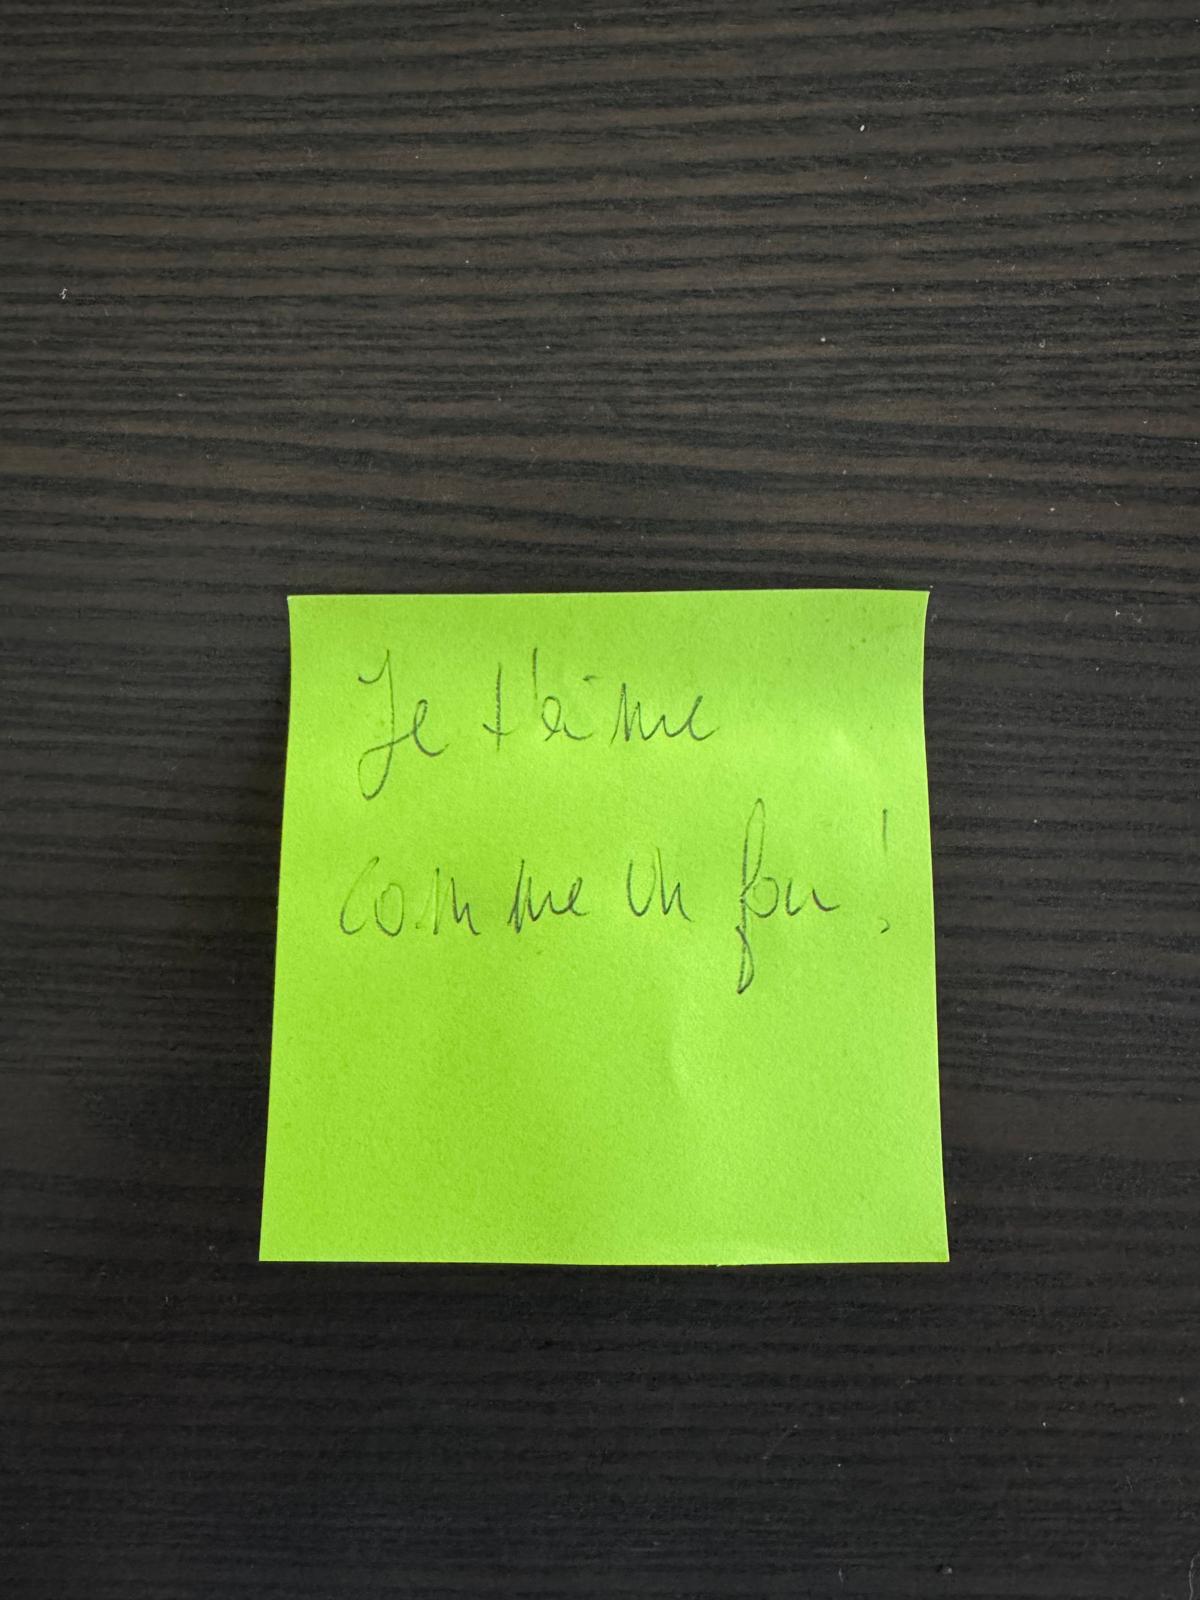 Je t'aime
comme un fou!